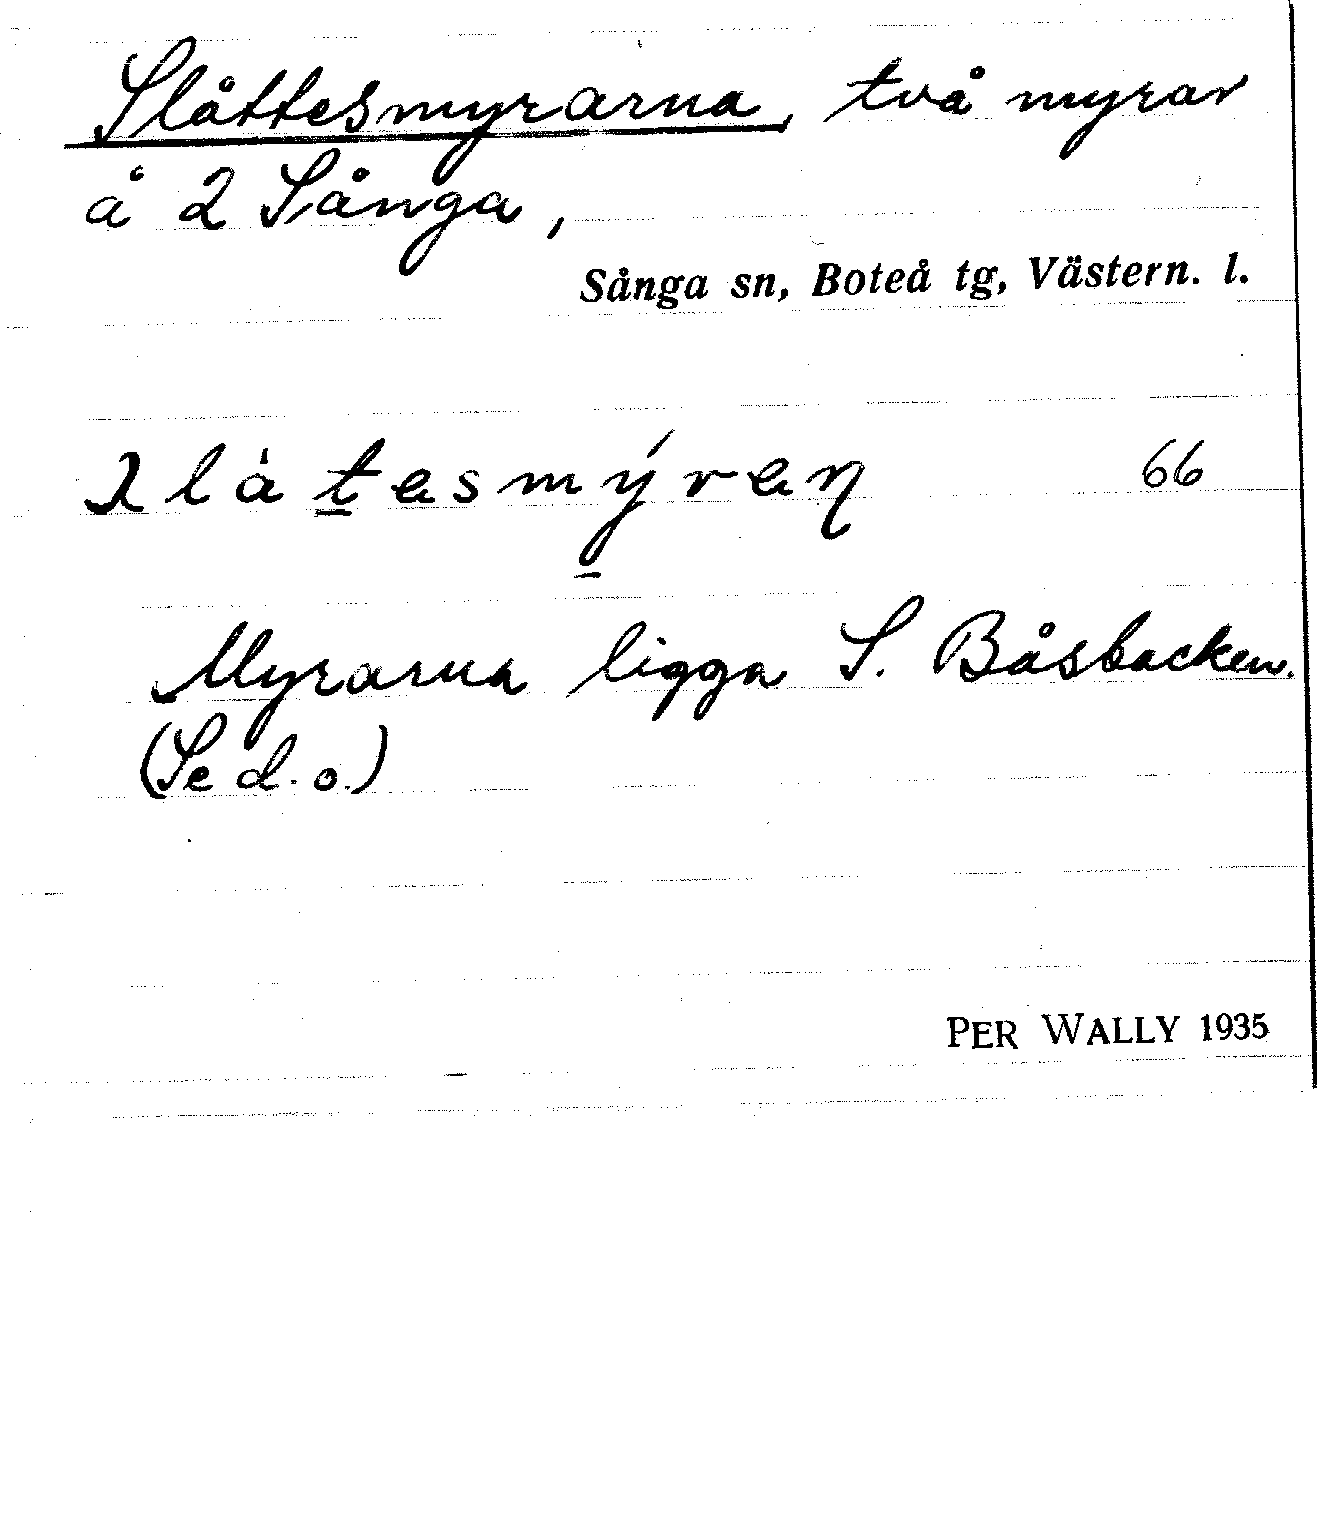 Slåttesmyrarna, två myrar
å 2 Sånga,
Sånga sn, Boteå tg, Västern. l.
66
Myrarna ligga S. Båsbacken.
(Se d. o.)
PER WALLY 1935